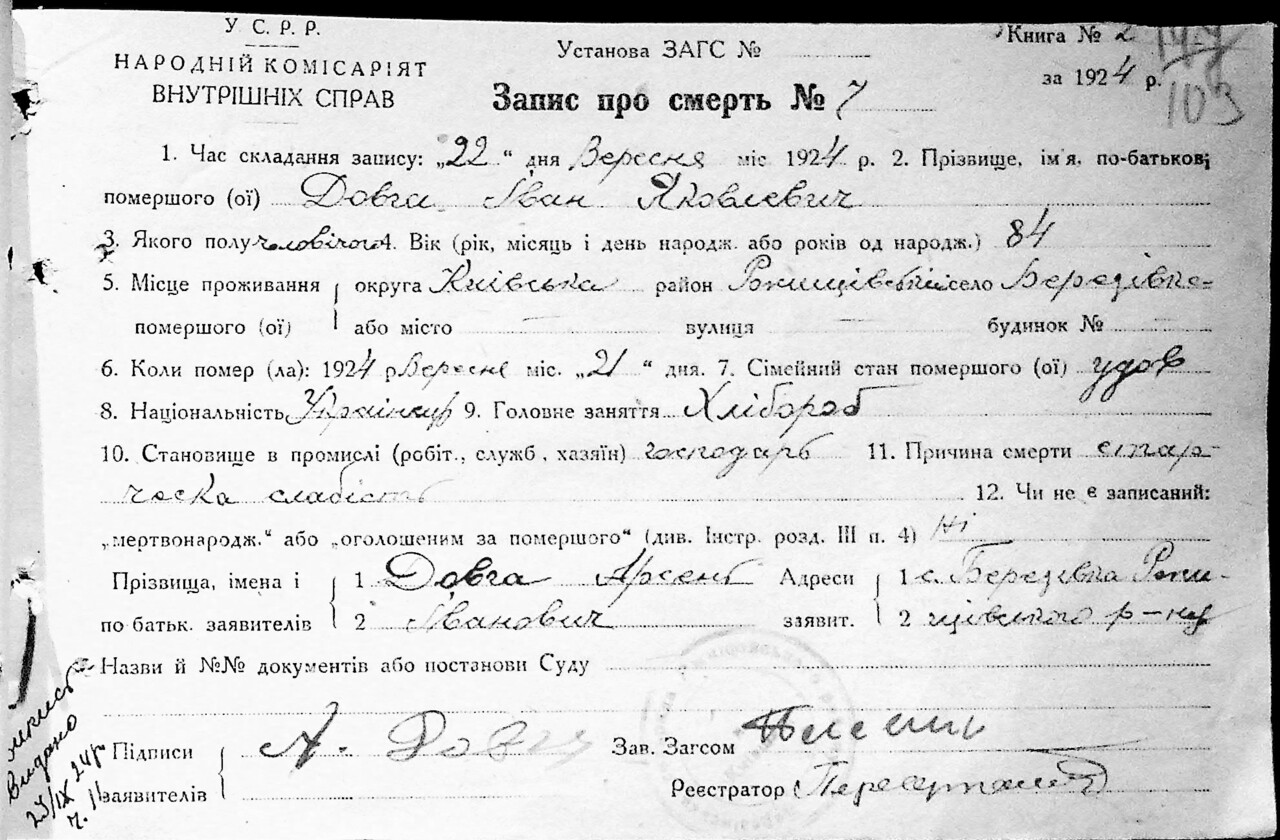 У. С. Р. Р.
НАРОДНІЙ КОМІСАРІЯТ
ВНУТРІШНІХ СПРАВ
Установа ЗАГС №
Книга № 2
за 1924 р.
103
Запис про смерть № 7
1. Час складання запису: „22“ дня Вересня міс 1924 р. 2. Прізвище, ім'я, по-батькові
помершого (ої) Довга Іван Яковлевич
3. Якого полу чоловічого 4. Вік (рік, місяць і день народж. або років од народж.) 84
5. Місце проживання округа Київська район Рокищівський село Березівка
помершого (ої) або місто вулиця будинок №
6. Коли помер (ла): 1924 р Вересня міс. „21“ дня. 7. Сімейний стан помершого (ої) удов
8. Національність Українець 9. Головне заняття Хлібороб
10. Становище в промислі (робіт., служб., хазяїн) господарь 11. Причина смерти стар-
ческа слабість 12. Чи не є записаний:
„мертвонародж.“ або „оголошеним за помершого“ (див. Інстр. розд. III п. 4) Ні
Прізвища, імена і 1 Довга Арсень Адреси 1 с. Березівка Роки-
по батьк. заявителів 2 Іванович заявит. 2 щівського р-ну
Назви й №№ документів або постанови Суду
Підписи А. Довга Зав. Загсом
заявителів Реєстратор
Видано
23/IX 24 р
ч. 11